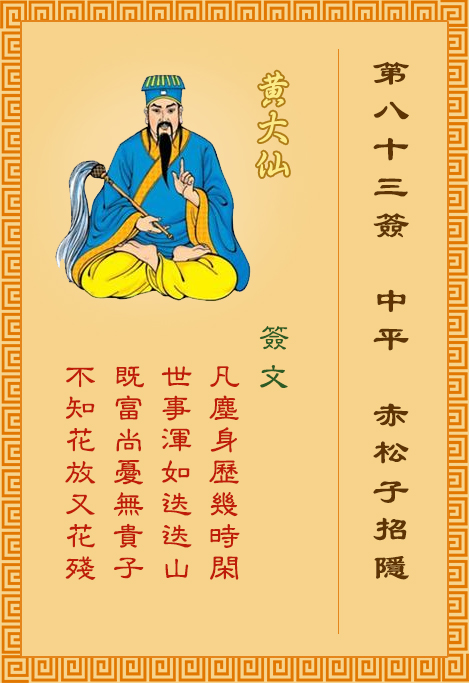 第八十三簽 中平 赤松子招隱
黃大仙
簽文
凡塵身歷幾時閑
世事渾如迭迭山
既富尚憂無貴子
不知花放又花殘